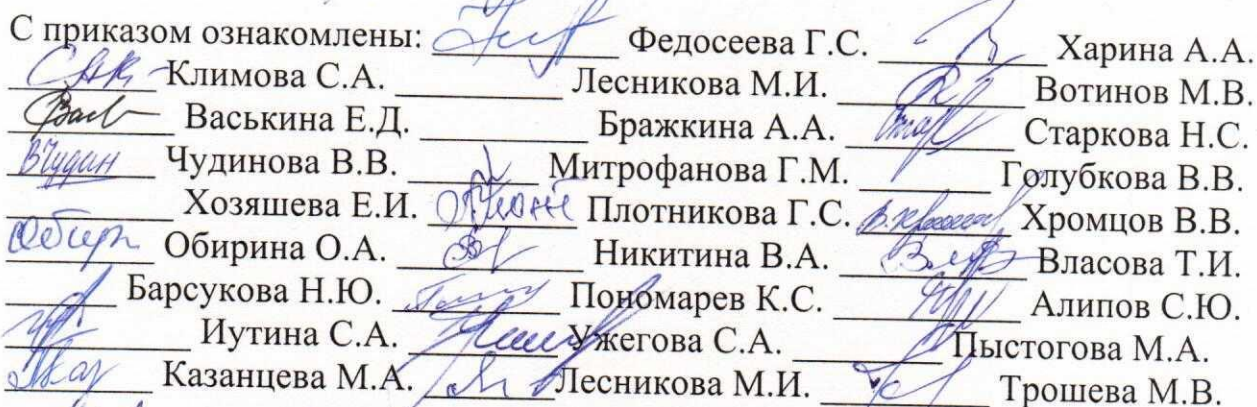 С приказом ознакомлены: ________ Федосеева Г.С. ________ Харина А.А.
________ Климова С.А. ________ Лесникова М.И. ________ Вотинов М.В.
________ Васькина Е.Д. ________ Бражкина А.А. ________ Старкова Н.С.
________ Чудинова В.В. ________ Митрофанова Г.М. ________ Голубкова В.В.
________ Хозяшева Е.И. ________ Плотникова Г.С. ________ Хромцов В.В.
________ Обирина О.А. ________ Никитина В.А. ________ Власова Т.И.
________ Барсукова Н.Ю. ________ Пономарев К.С. ________ Алипов С.Ю.
________ Иутина С.А. ________ Ужегова С.А. ________ Пыстогова М.А.
________ Казанцева М.А. ________ Лесникова М.И. ________ Трошева М.В.